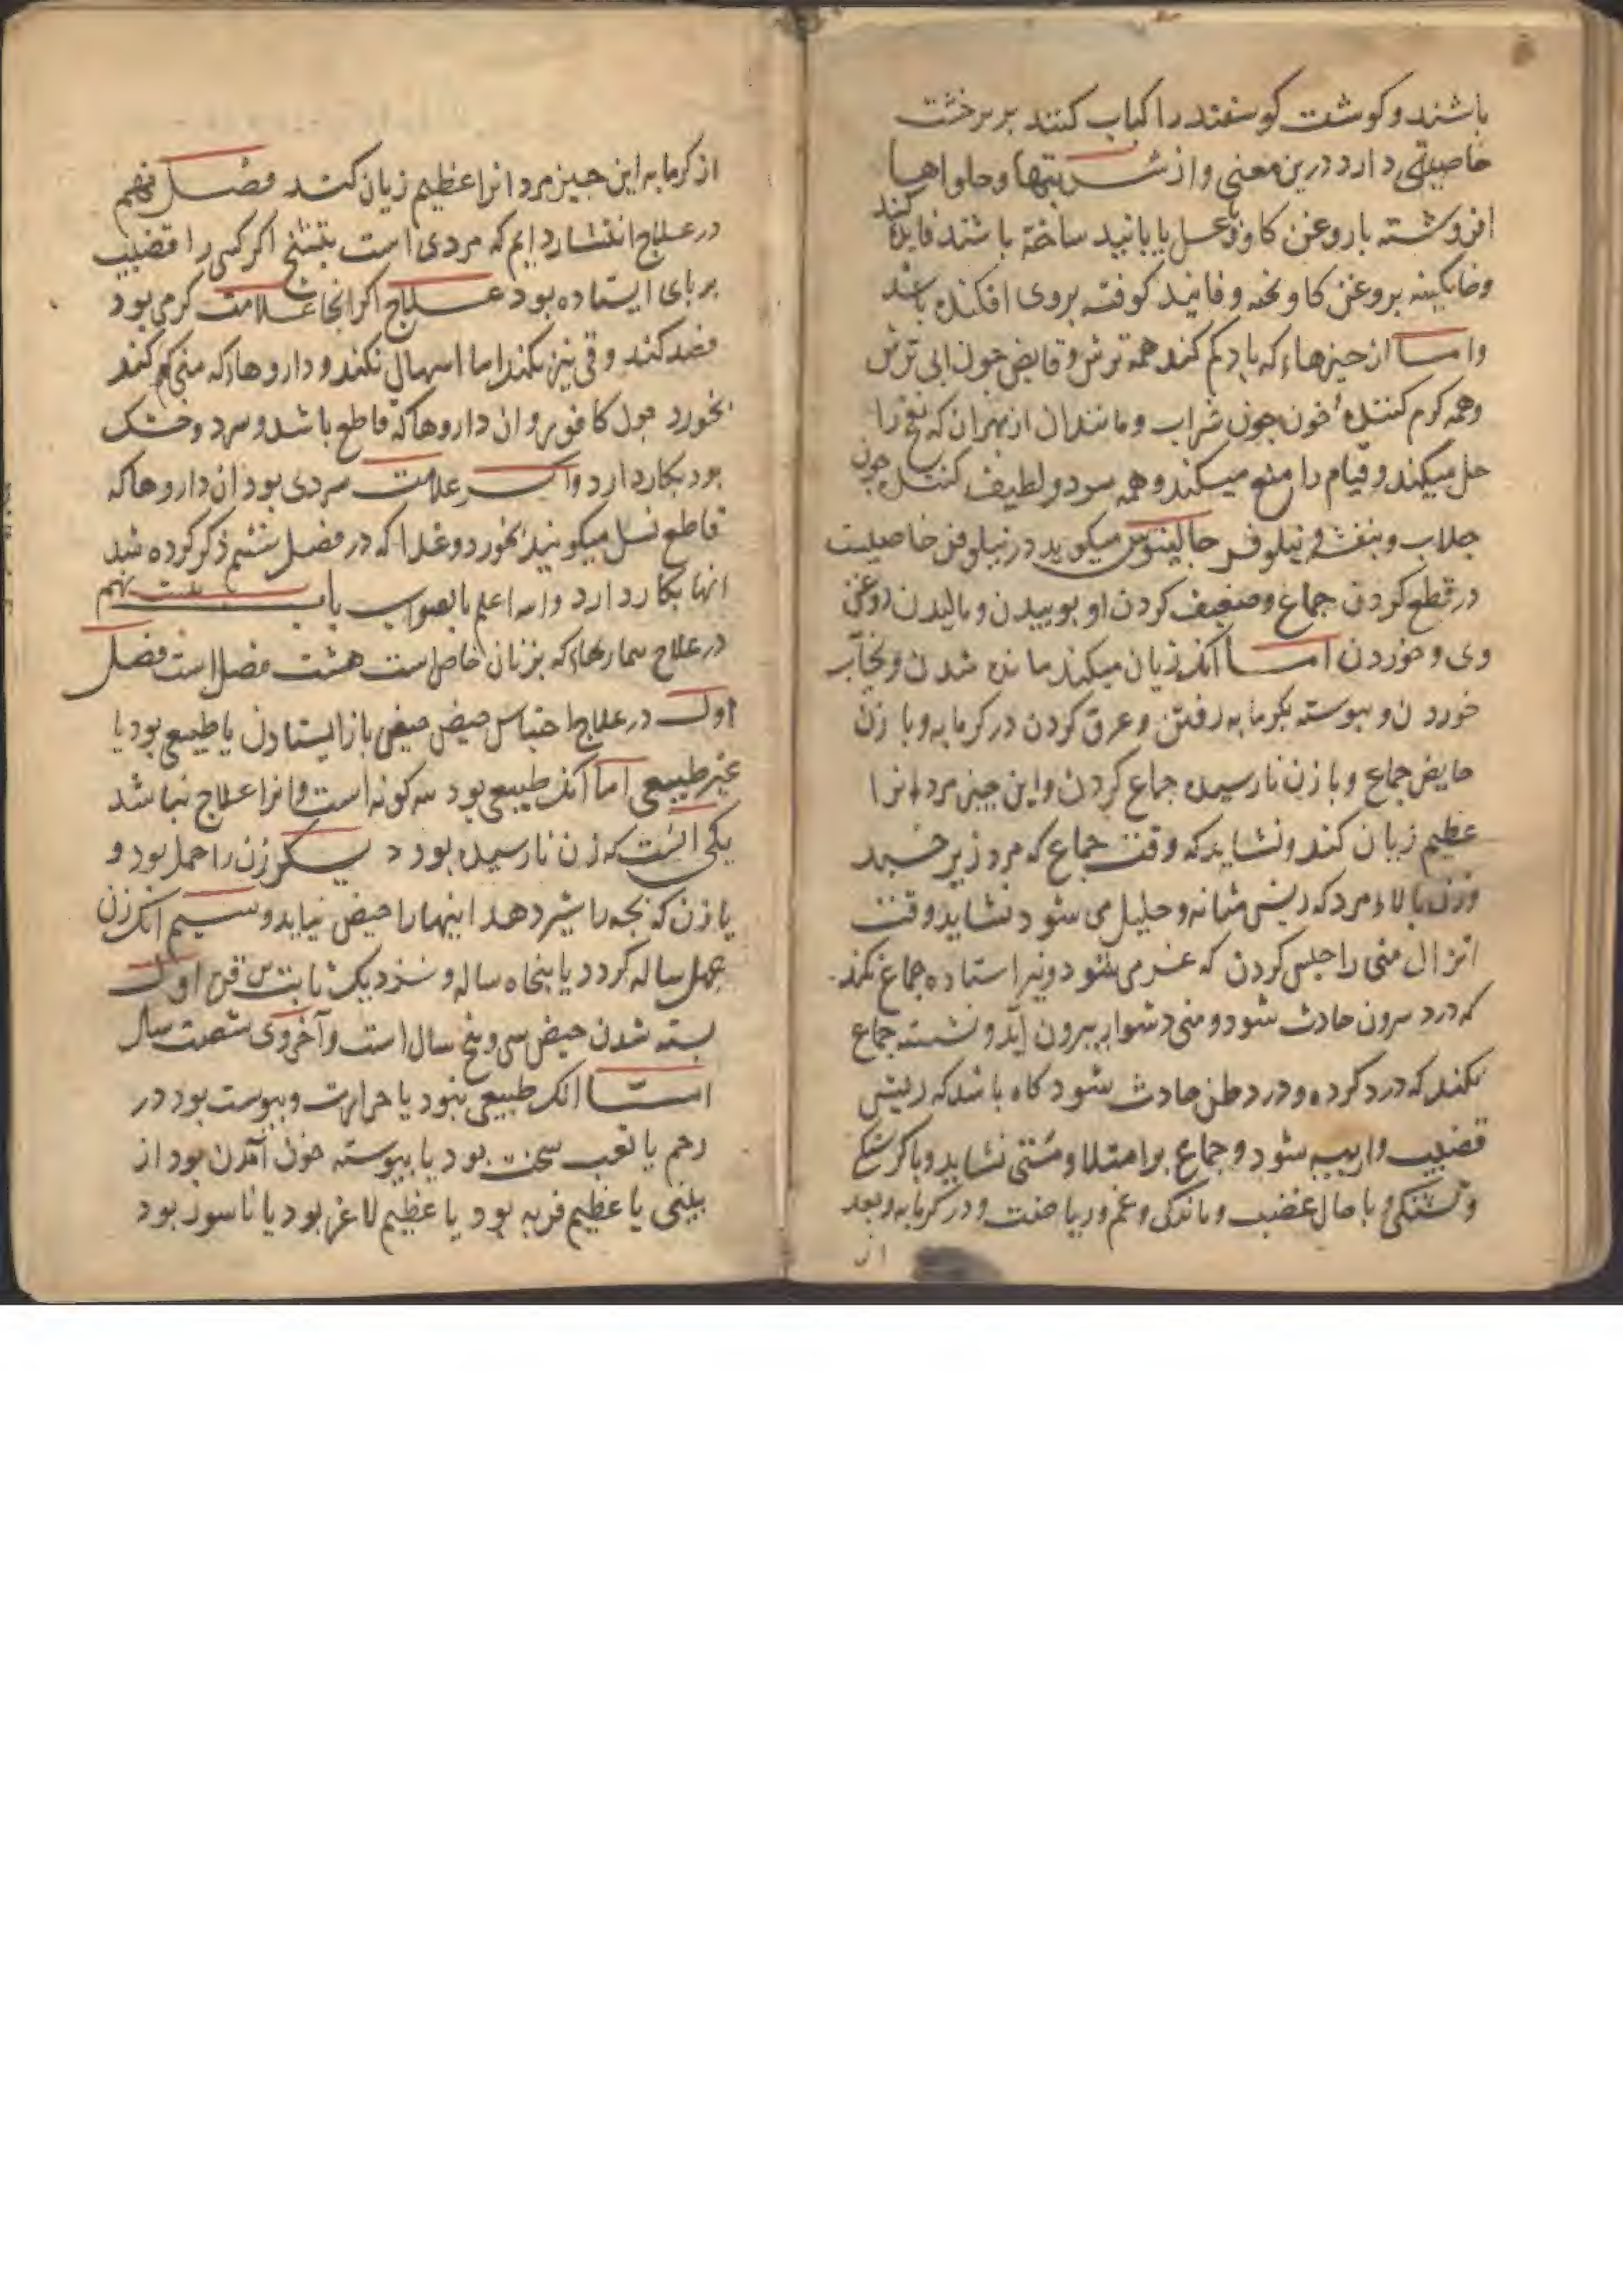 باشند و کوشت کوسفند را کباب کنند بر برخشت
خاصیتی دارد درین معنی و از شربتها و حلواها
افروشته با روغن کاو و عسل یا بانید ساخته باشند فایده کند
وخاکینه بروغن کاو پخته و فانید کوفته بروی افکنده باشد
واما از چیزهاء که باد کم کند همه ترش و قابض چون ابی ترش
وهمه کرم کننده خون چون شراب و مانند ان از بهر ان که نفخ را
حل میکند و قیام را منع میکند و همه سرد و لطیف کننده چون
جلاب و بنفشه و نیلوفر جالینوس میکوید در نیلوفر خاصیت
در قطع کردن جماع و ضعیف کردن او بوییدن و مالیدن روغن
وی و خوردن اما آنک زیان میکند مانده شدن و یخ آب
خوردن و پیوسته بکرمابه رفتن و عرق کردن در کرمابه و با زن
حایض جماع و با زن نارسیده جماع کردن و این چیز مردانرا
عظیم زیان کند و نشاید که وقت جماع که مرد زیر خسبد
وزن بالاء مرد که ریش مثانه و حلیل می شود نشاید وقت
انزال منی را حبس کردن که می شود و نیز استاده جماع نکند
که درد سرون حادث شود و منی دشوار بیرون آید و نشسته جماع
نکند که درد کرده و درد بطن حادث شود کاه باشد که ریش
قضیب واریبه شود و جماع بر امتلا و مستی نشاید و با کرسنکی
و تشنکی و با حال غضب و ماندکی و غم و ریاضت و در کرمابه و بعد
از
از کرمابه این چیز مردانرا عظیم زیان کند فصل نهم
در علاج انتشار دایم که مردی است بتشنج اکر کسی را قضیب
بر پای ایستاده بود علاج اکر انجا علامت کرمی بود
فصد کند و قی نیز بکند اما اسهال نکند و داروهاء که منی کم کند
بخورد چون کافور و ان داروها که قاطع باشد و سرد و خشک
بود بکار دارد و اکر علامت سردی بود ان داروها که
قاطع نسل میکویند بخورد و غذا که در فصل ششم ذکر کرده شد
انها بکار دارد والله اعلم بالصواب باب بیست نهم
در علاج بیماریهاء که بزنان خاص است هشت فصل است فصل
اول در علاج احتباس حیض حیض باز ایستادن یا طبیعی بود یا
غیر طبیعی اما آنک طبیعی بود سه کونه است و انرا علاج نباشد
یکی انست که زن نارسیده بود دیکر زن را حمل بود و
یا زن که بچه را شیر دهد اینها را حیض نیاید و سیم انک زن
چهل ساله کردد یا پنجاه ساله و نزدیک ثابت بن قره اول
بسته شدن حیض سی و پنج سال است و آخر وی شصت سال
اما انک طبیعی نبود یا حرارت و یبوست بود در
رحم یا تعب سخت بود یا پیوسته خون آمدن بود از
بینی یا عظیم فربه بود یا عظیم لاغر بود یا ناسور بود